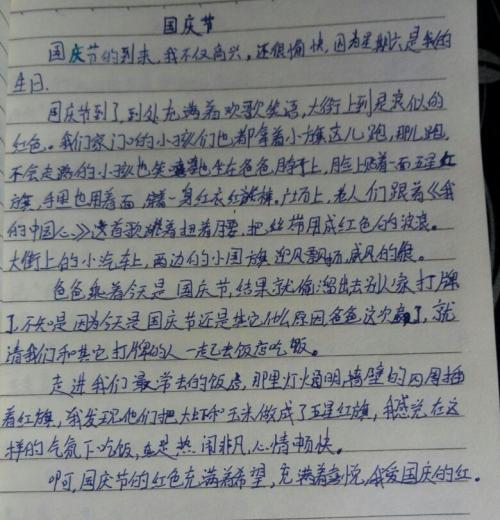 国庆节
国庆节的到来,我不仅高兴,还很愉快,因为星期六是我的
生日.
国庆节到了,到处充满着欢歌笑语,大街上到是浪似的
红色。我们家门口的小孩们也都拿着小旗这儿跑,那儿跑,
不会走路的小孩也笑嘻嘻地坐在爸爸脖子上,脸上贴着一面五星红
旗,手里也用着面 穿着一身红衣红裤。广场上,老人们跟着《我
的中国心》这首歌跳着扭着腰,把丝带甩成红色的波浪。
大街上的小汽车上,两边的小国旗迎风飘扬,威风的很。
爸爸乘着今天是国庆节,结果就偷溜出去别人家打牌
了,不知是因为今天是国庆节还是其它什么原因爸爸这次赢了,就
请我们和其它打牌的人一起去饭店吃饭。
走进我们最常去的饭店,那里灯火通明,墙壁的四周插
着红旗,我发现他们把大虾和玉米做成了五星红旗,我感觉在这
样的气氛下吃饭,真是热闹非凡,心情畅快。
啊,国庆节的红色充满着希望,充满着喜悦,我爱国庆的红。